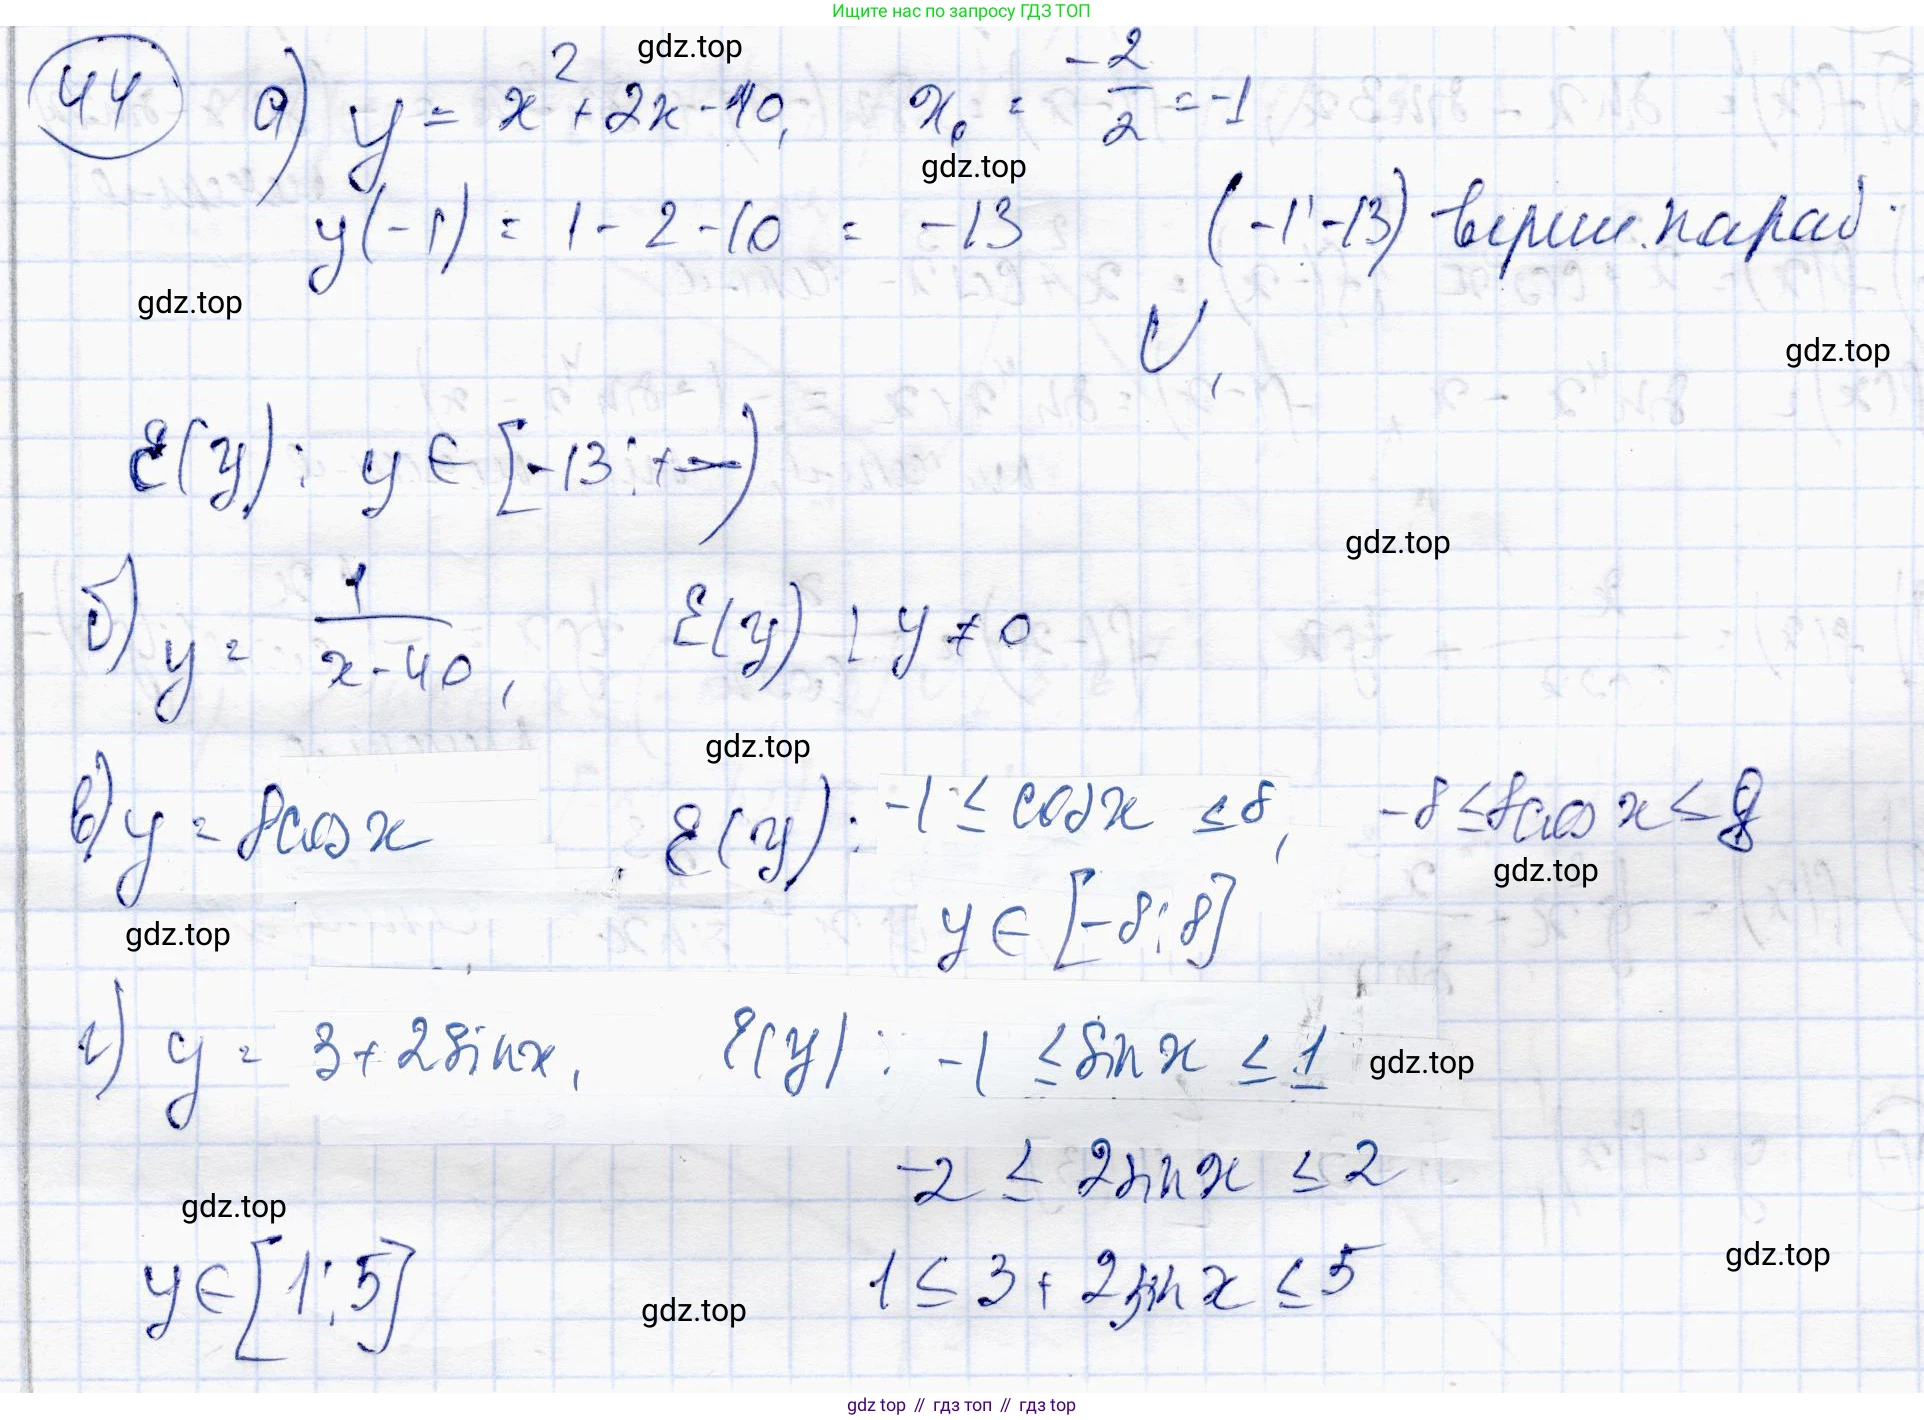 Ищите нас по запросу ГДЗ ТОП
gdz.top
44 а) y = x² + 2x - 10, x₀ = -2/2 = -1
gdz.top
y(-1) = 1 - 2 - 10 = -13 (-1; -13) верш. параб.
gdz.top
gdz.top
E(y): y ∈ [-13; +∞)
gdz.top
б) y = 1/(x-40), E(y): y ≠ 0
gdz.top
в) y = 8cos x E(y): -1 ≤ cos x ≤ 8, -8 ≤ 8cos x ≤ 8
gdz.top
gdz.top
y ∈ [-8; 8]
г) y = 3 + 2sin x, E(y): -1 ≤ sin x ≤ 1
gdz.top
-2 ≤ 2sin x ≤ 2
gdz.top
y ∈ [1; 5] 1 ≤ 3 + 2sin x ≤ 5
gdz.top
gdz.top
gdz top // гдз топ // гдз top